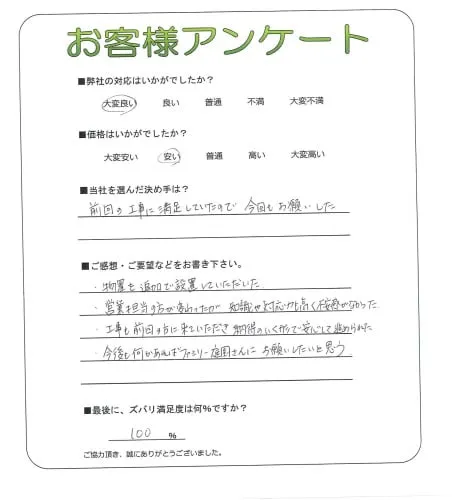 お客様アンケート
■弊社の対応はいかがでしたか？
大変良い 良い 普通 不満 大変不満
■価格はいかがでしたか？
大変安い 安い 普通 高い 大変高い
■当社を選んだ決め手は？
前回の工事に満足していたので 今回もお願いした
■ご感想・ご要望などをお書き下さい。
・物置も追加で設置していただいた
・営業担当の方が変わったが 知識や対応力も高く
・工事も前回の方に来ていただき 納得のいく形で安心して進められた
・今後も何かあればファミリー庭園さんに お願いしたいと思う
■最後に、ズバリ満足度は何%ですか？
100 %
ご協力頂き、誠にありがとうございました。